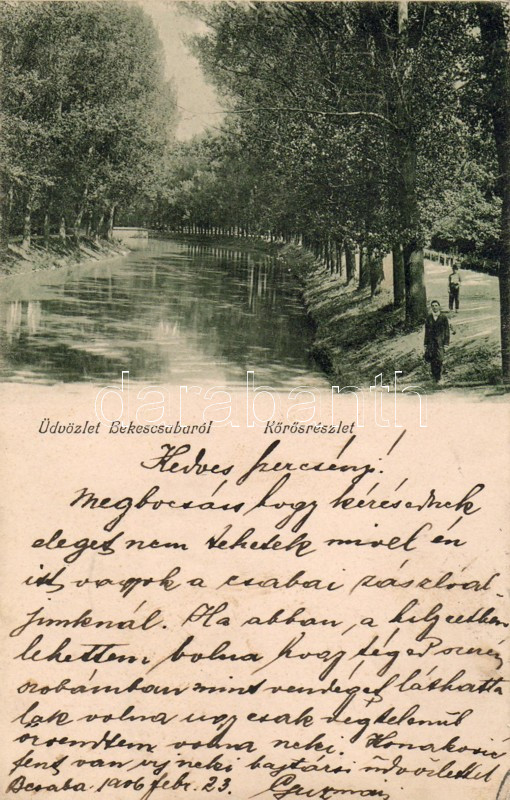 Üdvözlet Békéscsabáról Körösrészlet
darabanth
Kedves
Megbocsáss hogy kérésednek
eleget nem tehetek mivel én
itt vagyok a csabai zászlóal-
junknál. Ha abban, a helyzetben
lehettem volna hogy téged szerény
szobámban mint vendéget láthatta
lak volna úgy csak végtelenül
örvendtem volna neki.
fent van
Bcsaba. 1906 febr. 23.